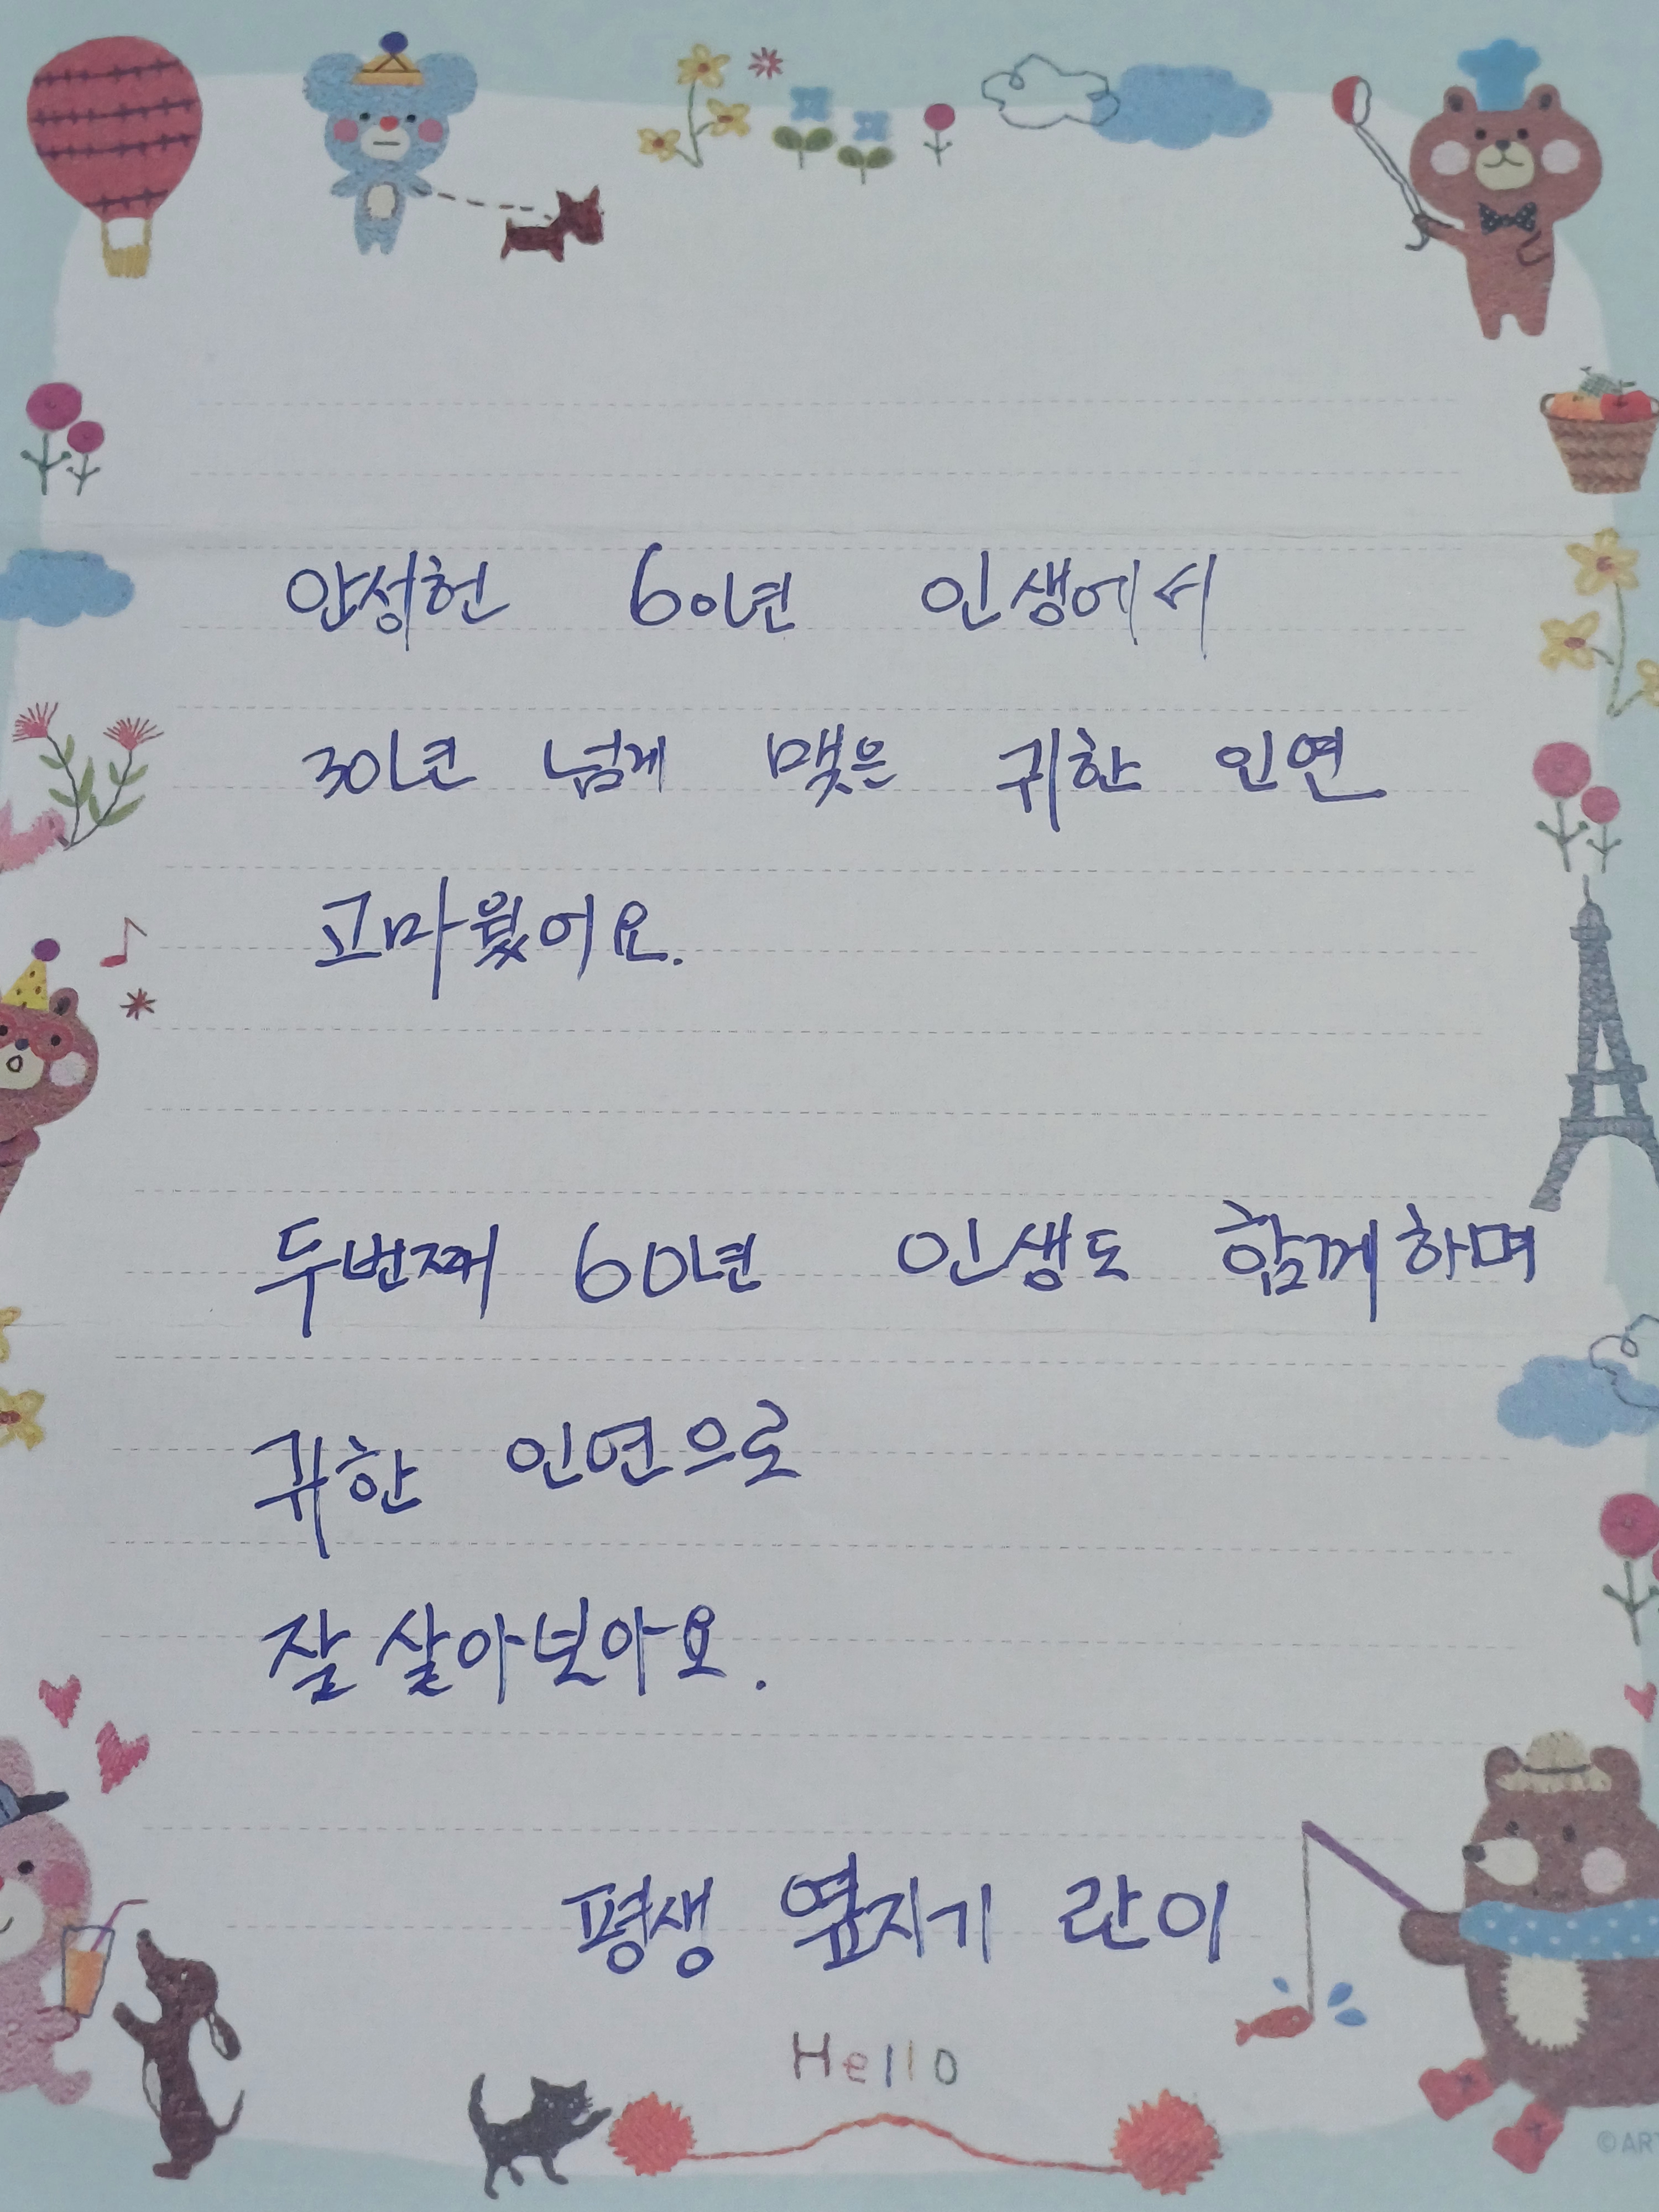 안성헌 60년 인생에서
30년 넘게 맺은 귀한 인연
고마웠어요.
두번째 60년 인생도 함께하며
귀한 인연으로
잘 살아보아요.
평생 옆지기 란이
Hello
©AR